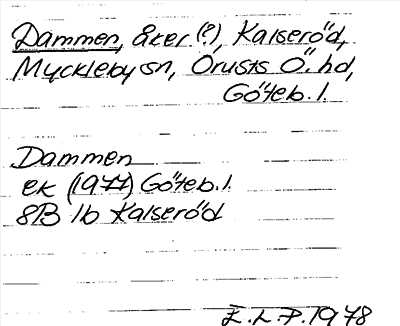 Dammen, åker (?), Kalseröd,
Myckleby sn, Orusts Ö. hd,
Göteb. l.
Dammen
ek (1977) Göteb. l.
8B 1b Kalseröd
E.L.P. 1978